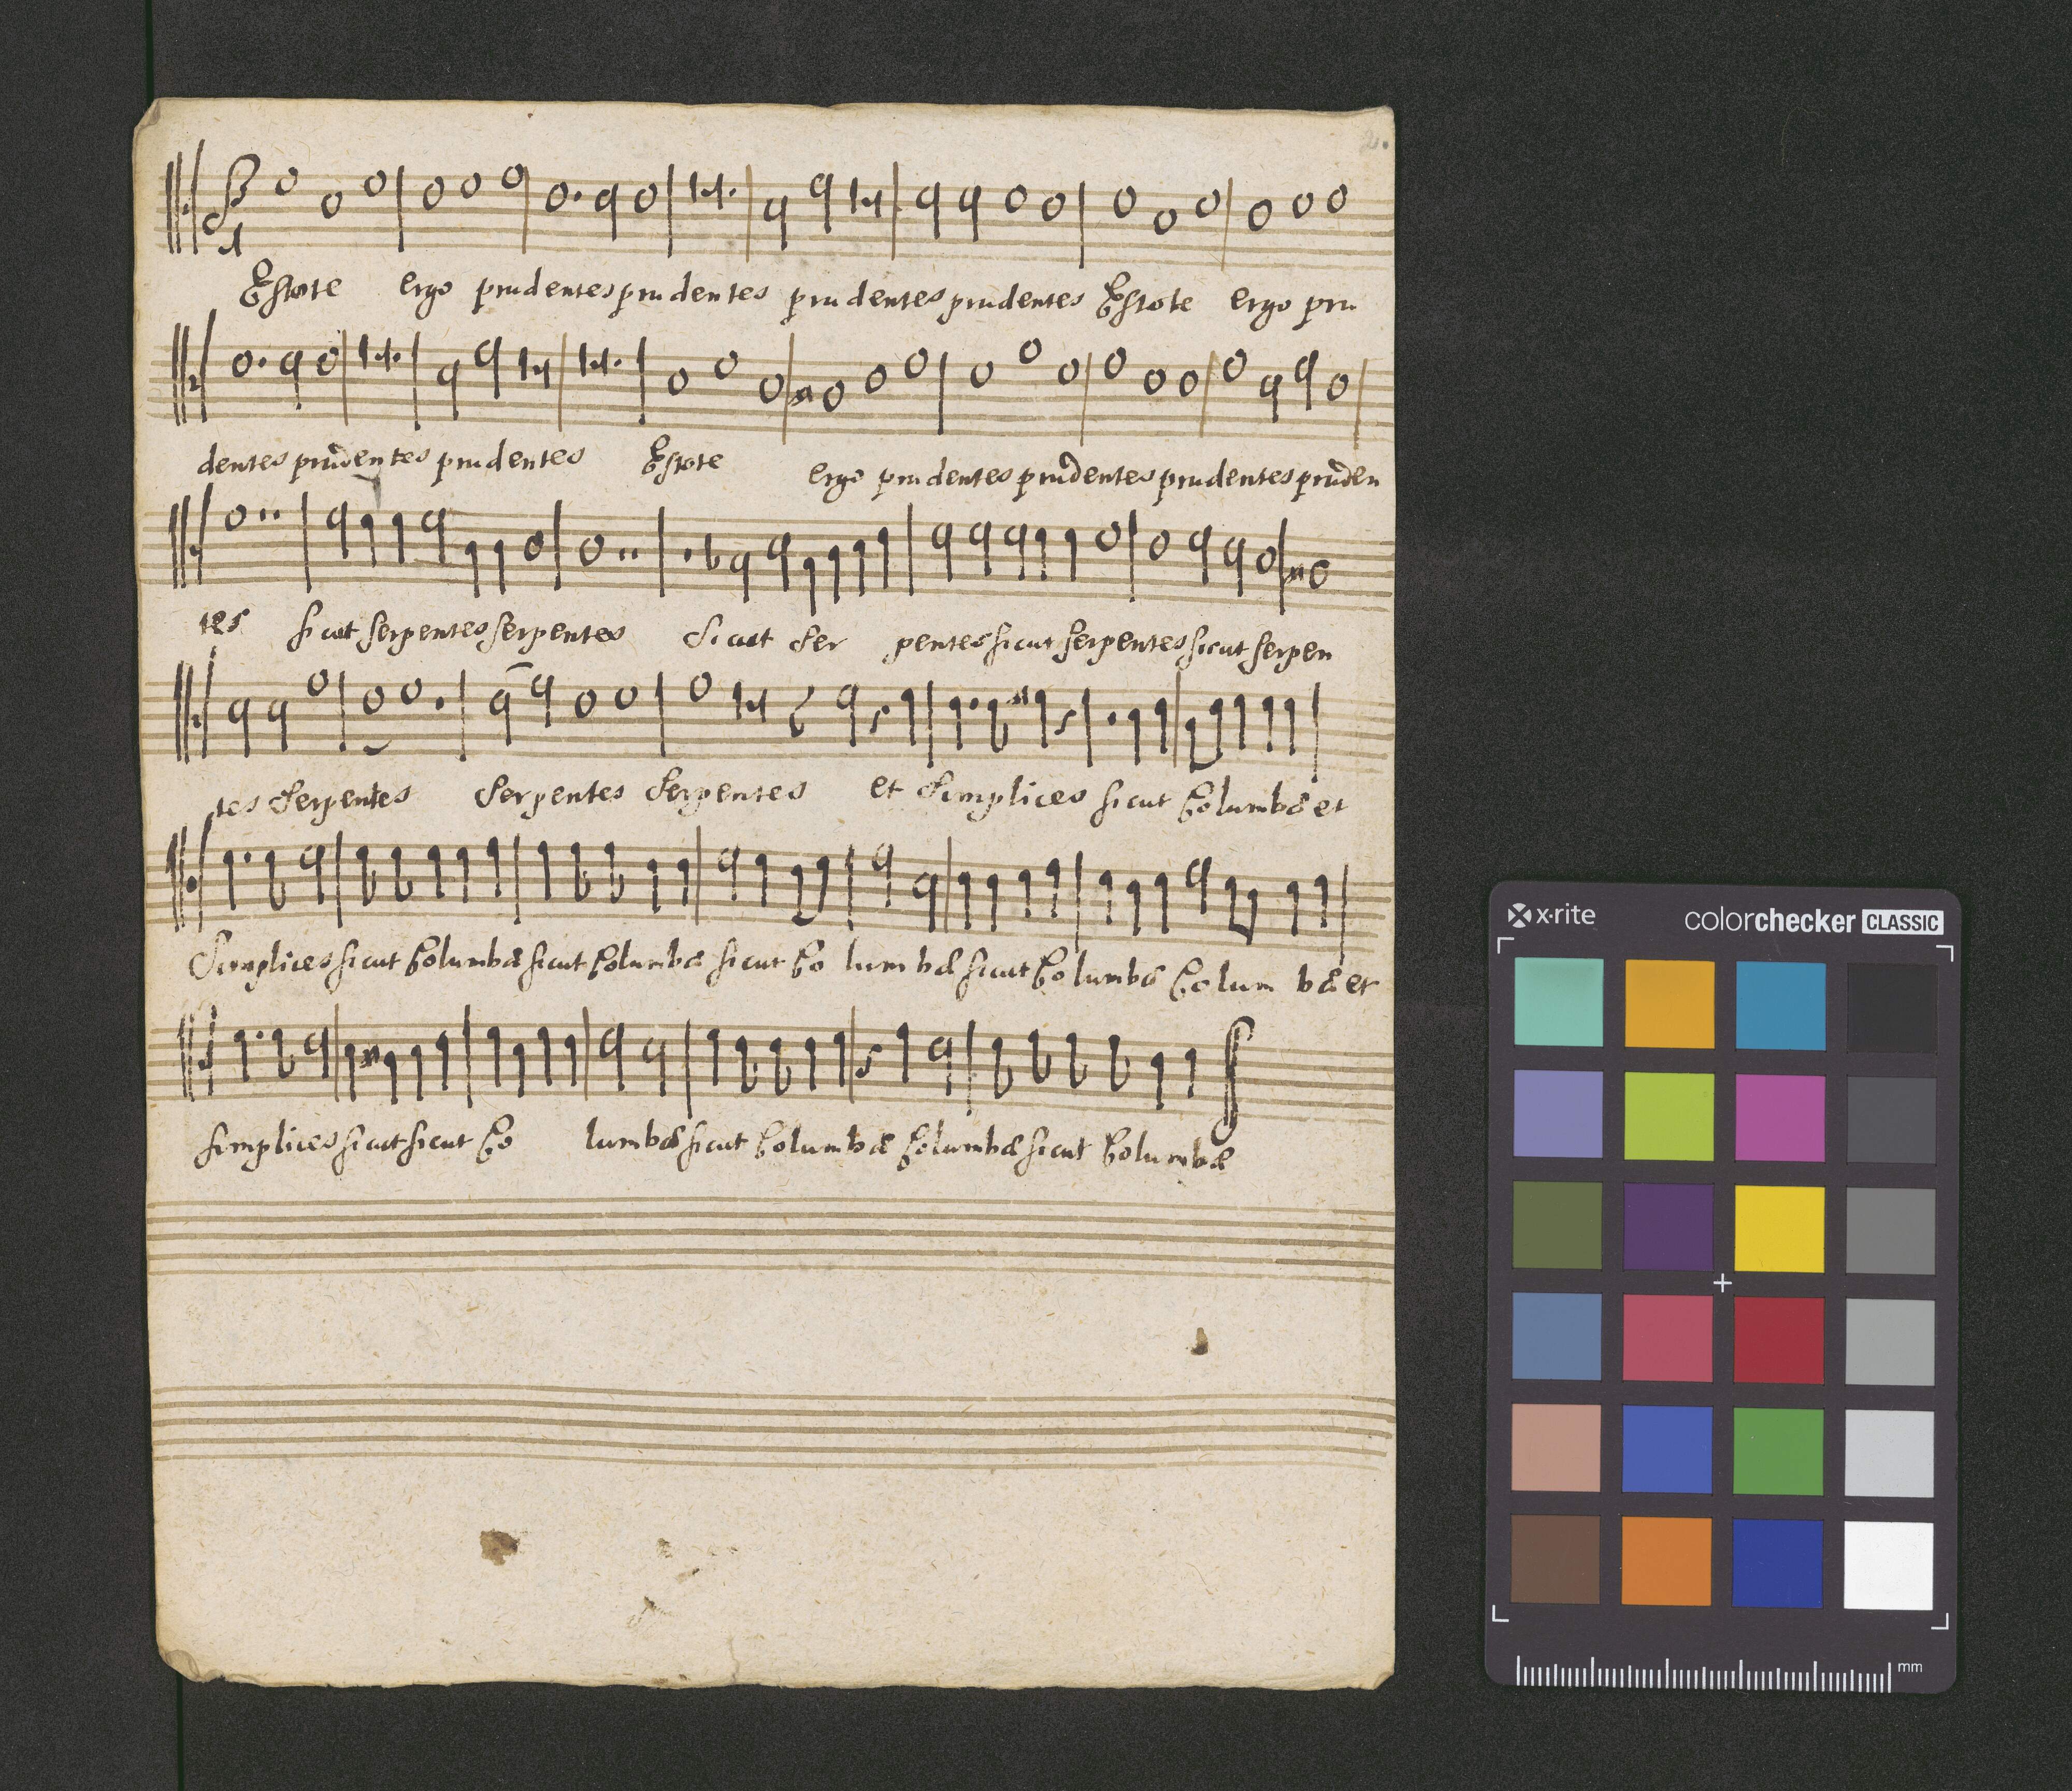 2.
Estote ergo prudentes prudentes prudentes prudentes Estote ergo pru
dentes prudentes prudentes Estote ergo prudentes prudentes prudentes pruden
tes sicut serpentes serpentes Sicut Ser pentes sicut serpentes sicut serpen
tes Serpentes Serpentes Serpentes et Simplices sicut Columbæ et
Simplices sicut Columbæ sicut Columbæ sicut Co lumbæ sicut Columbæ Colum bæ et
simplices sicut sicut Co lumbæ sicut Columbæ Columbæ sicut Columbæ
x-rite
colorchecker CLASSIC
mm